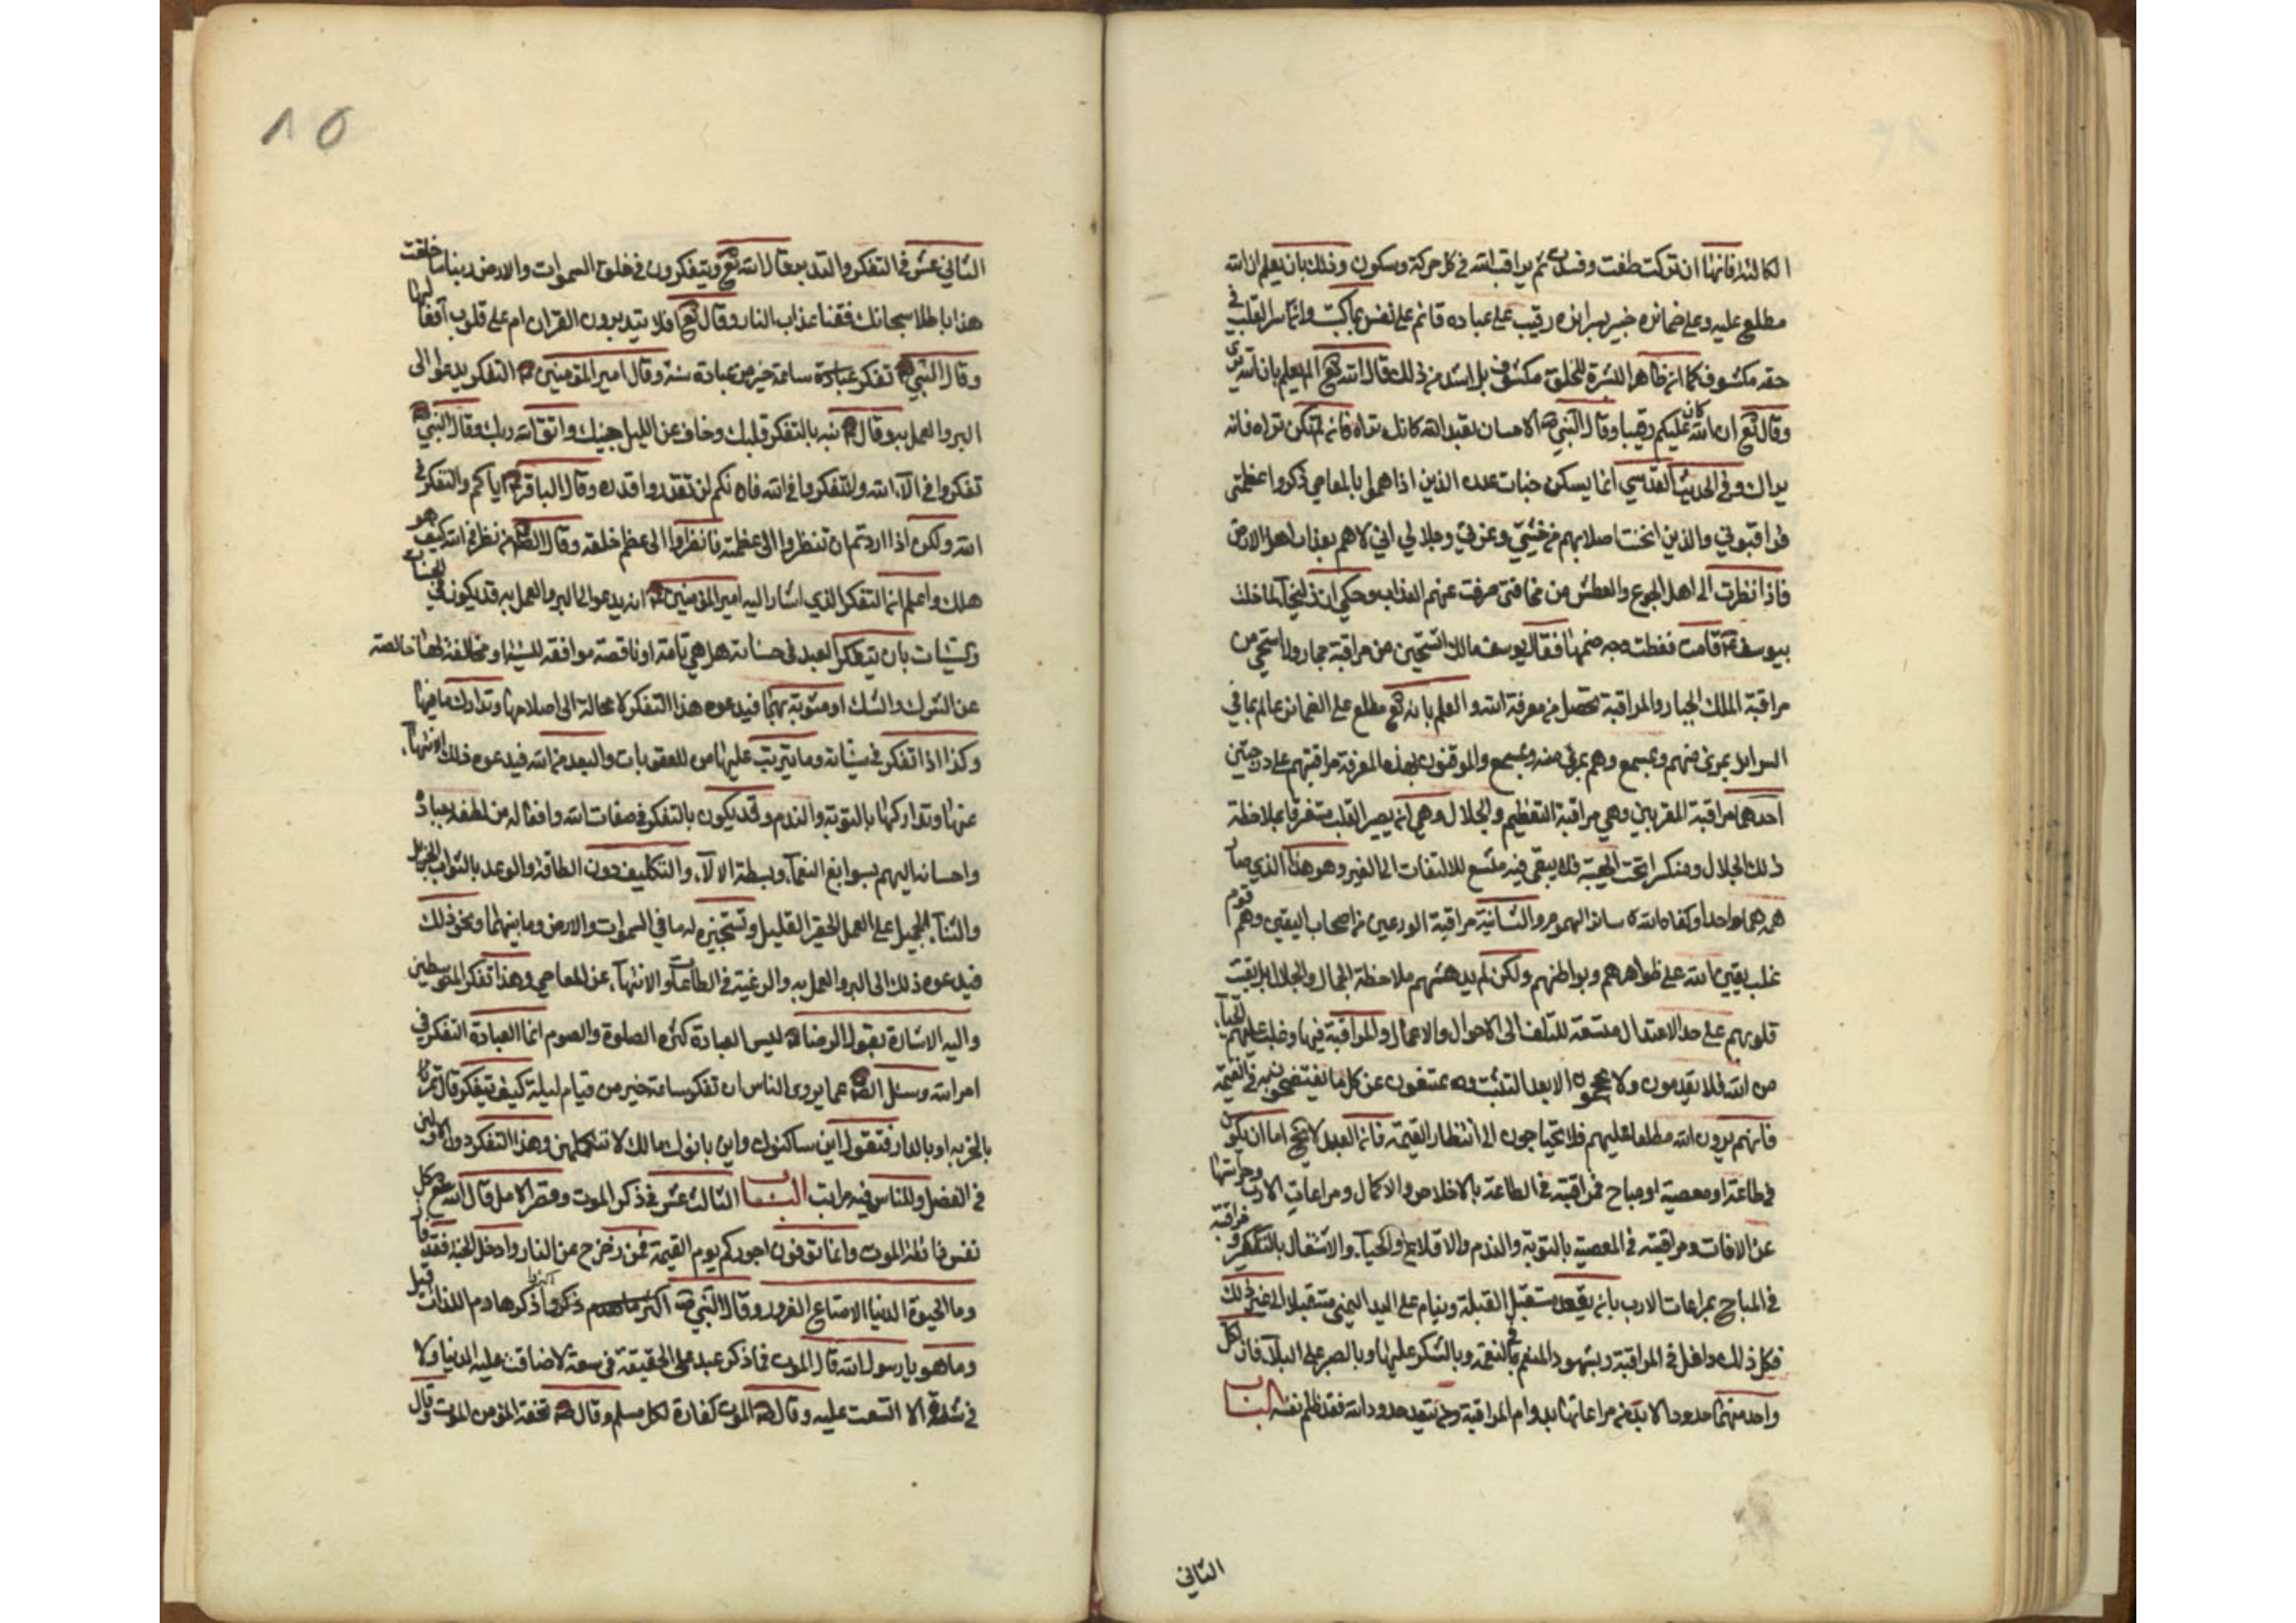 الكالئة فانها ان تركت طغت وفسدت ثم يراقب الله في كل حركة وسكون وذلك بان يعلم ان الله
مطلع عليه وعلى ضمائره خبير بسرائره رقيب على عباده قائم على نفس بما كسبت وانما سر القلب في
حقه مكشوف كما ان ظاهر البشرة للخلق مكشوف بل اشد من ذلك قال الله تع الم يعلم بان الله يرى
وقال تع ان الله كان عليكم رقيبا وقال النبي ص الاحسان تعبد الله كانك تراه فان لم تكن تراه فانه
يراك وفي الحديث القدسي انما يسكن جنات عدن الذين اذا هموا بالمعاصي ذكروا عظمتي
فراقبوني والذين انحنت اصلابهم من خشيتي وعزتي وجلالي اني لاهم بعذاب اهل الارض
فاذا نظرت الى اهل الجوع والعطش من مخافتي صرفت عنهم العذاب وحكي ان زليخا لما خلت
بيوسف ع قامت فغطت وجه صنمها فقال يوسف مالك اتستحين من مراقبة جماد ولا استحي من
مراقبة الملك الجبار والمراقبة تحصل من معرفة الله والعلم بانه تع مطلع على الضمائر عالم بما في
السرائر بمرئ منهم ومسمع وهم بمرئ منه ومسمع والموقنون بهذه المعرفة مراقبتهم على درجتين
احدهما مراقبة المقربين وهي مراقبة التعظيم والجلال وهي ان يصير القلب مستغرقا بملاحظة
ذلك الجلال ومنكسرا تحت الهيبة فلا يبقى فيه متسع للالتفات الى الغير وهو هذا الذي صار
همه هما واحدا وكفاه الله سائر الهموم والثانية مراقبة الورعين من اصحاب اليقين وهم قوم
غلب يقين الله على ظواهرهم وبواطنهم ولكن لم يدهشهم ملاحظة الجمال والجلال بل بقيت
قلوبهم على حد الاعتدال متسعة للتلفت الى الاحوال والاعمال والمراقبة فيها وغلب عليهم الحياء
من الله فلا يقدمون ولا يحجمون الا بعد التثبت ويمتنعون عن كل ما يفتضحون به في القيمة
فانهم يرون الله مطلعا عليهم فلا يحتاجون الى انتظار القيمة فان العبد لا يخ اما ان يكون
في طاعة او معصية او مباح فمراقبته في الطاعة بالاخلاص والاكمال ومراعات الادب وحراستها
عن الافات ومراقبته في المعصية بالتوبة والندم والاقلاع والحياء والاشتغال بالتكفير ومراقبته
في المباح بمراعات الادب بان يقعد مستقبل القبلة وينام على اليد اليمنى مستقبلا الى غير ذلك
فكل ذلك داخل في المراقبة وبشهود المنعم في النعمة وبالشكر عليها وبالصبر على البلاء فان لكل
واحد منهما حدودا لا بد من مراعاتها بدوام المراقبة ومن يتعد حدود الله فقد ظلم نفسه الباب
الثاني
١٥
الثاني عشر في التفكر والتدبر قال الله تع ويتفكرون في خلق السموات والارض ربنا ما خلقت
هذا باطلا سبحانك فقنا عذاب النار وقال تع افلا يتدبرون القران ام على قلوب اقفالها
وقال النبي ص تفكر عبادة ساعة خير من عبادة سنة وقال امير المؤمنين ع التفكر يدعوا الى
البر والعمل به وقال ع نبه بالتفكر قلبك وجاف عن الليل جنبك واتق الله ربك وقال النبي ص
تفكروا في آلاء الله ولا تتفكروا في الله فانكم لن تقدروا قدره وقال الباقر ع اياكم والتفكر في
الله ولكن اذا اردتم ان تنظروا الى عظمته فانظروا الى عظم خلقه وقال الص ع من نظر في الله كيف هو
هلك واعلم ان التفكر الذي اشار اليه امير المؤمنين ع انه يدعو الى البر والعمل به قد يكون في الحسنات
والسيئات بان يتفكر العبد في حسناته هل هي تامة او ناقصة موافقة للسنة او مخالفة لها خالصة
عن الشرك والشك او مشوبة بهما فيدعوه هذا التفكر لا محالة الى اصلاحها وتدارك ما فيها
وكذا اذا تفكر في سيئاته وما يترتب عليها من العقوبات والبعد من الله فيدعوه ذلك الانتهاء
عنها وتداركها بالتوبة والندم وقد يكون بالتفكر في صفات الله وافعاله من لطفه بعباده
واحسانه اليهم بسوابغ النعماء وبسطة الالاء والتكليف دون الطاقة والوعد بالثواب الجزيل
والثناء الجميل على العمل الحقير القليل وتسخيره له ما في السموات والارض وما بينهما ونحو ذلك
فيدعوه ذلك الى البر والعمل به والرغبة في الطاعات والانتهاء عن المعاصي وهذا تفكر المتوسطين
واليه الاشارة بقول الرضا ع ليس العبادة كثرة الصلوة والصوم انما العبادة التفكر في
امر الله وسئل الص ع عما يروي الناس ان تفكر ساعة خير من قيام ليلة كيف يتفكر قال تمر
بالخربة او بالدار فتقول اين ساكنوك واين بانوك مالك لا تتكلمين وهذا التفكر دون الاولين
في الفضل وللناس فيه مراتب الباب الثالث عشر في ذكر الموت وقصر الامل قال الله تع كل
نفس ذائقة الموت وانما توفون اجوركم يوم القيمة فمن زحزح عن النار وادخل الجنة فقد فاز
وما الحيوة الدنيا الا متاع الغرور وقال النبي ص اكثروا ذكر هادم اللذات قيل
وما هو يا رسول الله قال الموت فما ذكره عبد على الحقيقة في سعة الا ضاقت عليه الدنيا ولا
في شدة الا اتسعت عليه وقال ص الموت كفارة لكل مسلم وقال ص تحفة المؤمن الموت وقال